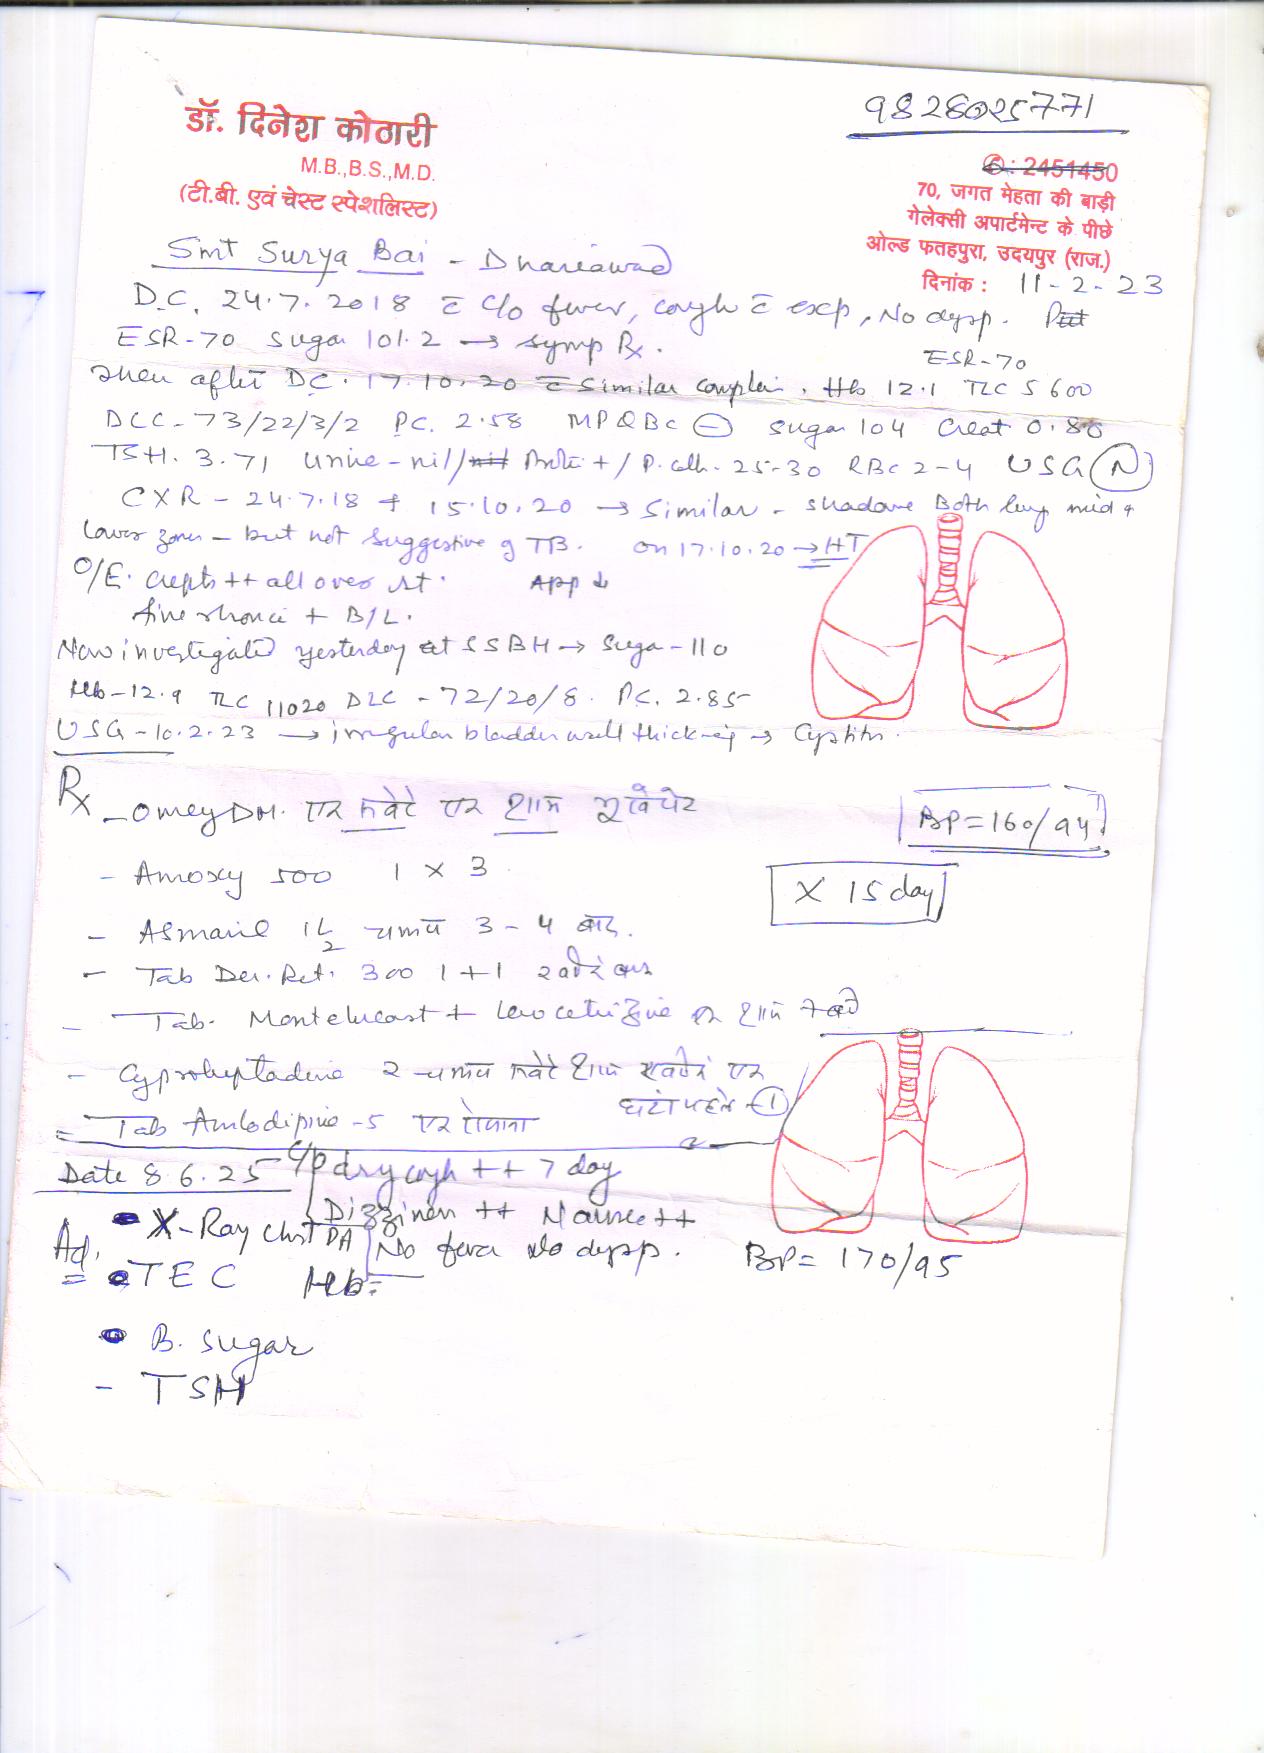 9828025771
डॉ. दिनेश कोठारी
M.B.,B.S.,M.D.
(टी.बी. एवं चेस्ट स्पेशलिस्ट)
✆ : 2451450
70, जगत मेहता की बाड़ी
गेलेक्सी अपार्टमेन्ट के पीछे
ओल्ड फतहपुरा, उदयपुर (राज.)
दिनांक : 11-2-23
Smt Surya Bai - Dhariawad
D.C. 24.7.2018 c̄ c/o fever, cough c̄ exp, No dysp.
ESR-70 Sugar 101.2 → symp Rx.
ESR-70
then after DC. 17.10.20 c̄ similar complain. Hb 12.1 TLC 5600
DLC- 73/22/3/2 PC. 2.58 MP QBC ⊖ sugar 104 Creat 0.80
TSH. 3.71 Urine-nil/ Prote + / P. cell. 25-30 RBC 2-4 USG (N)
CXR - 24.7.18 & 15.10.20 → Similar - shadows Both lung mid &
lower zones - but not suggestive of TB. on 17.10.20 → HT
O/E. crepts ++ all over st. App ↓
fine rhonci + B/L.
Now investigated yesterday at SSBH → Suga-110
Hb-12.9 TLC 11020 DLC - 72/20/8. PC. 2.85
USG-10.2.23 → irregular bladder wall thickning → Cystitis.
Rx
- Omey DM. एक सवेरे एक शाम भूखे पेट
BP=160/94
- Amoxy 500 1 x 3
X 15 day
- Asmaril 1½ चम्मच 3-4 बार.
- Tab Der. Ret. 300 1+1
- Tab- Montelucast + Levocetrizine एक शाम
- Cyproheptadine 2 चम्मच सवेरे शाम एक
घंटा पहले -①
= Tab Amlodipine-5 एक रोजाना
Date 8.6.25 - C/o dry cough ++ 7 day
Dizziness ++ Nausea ++
No fever No dysp.
BP= 170/95
Ad.
X-Ray Chst PA
TEC Hb=
B. Sugar
- TSH